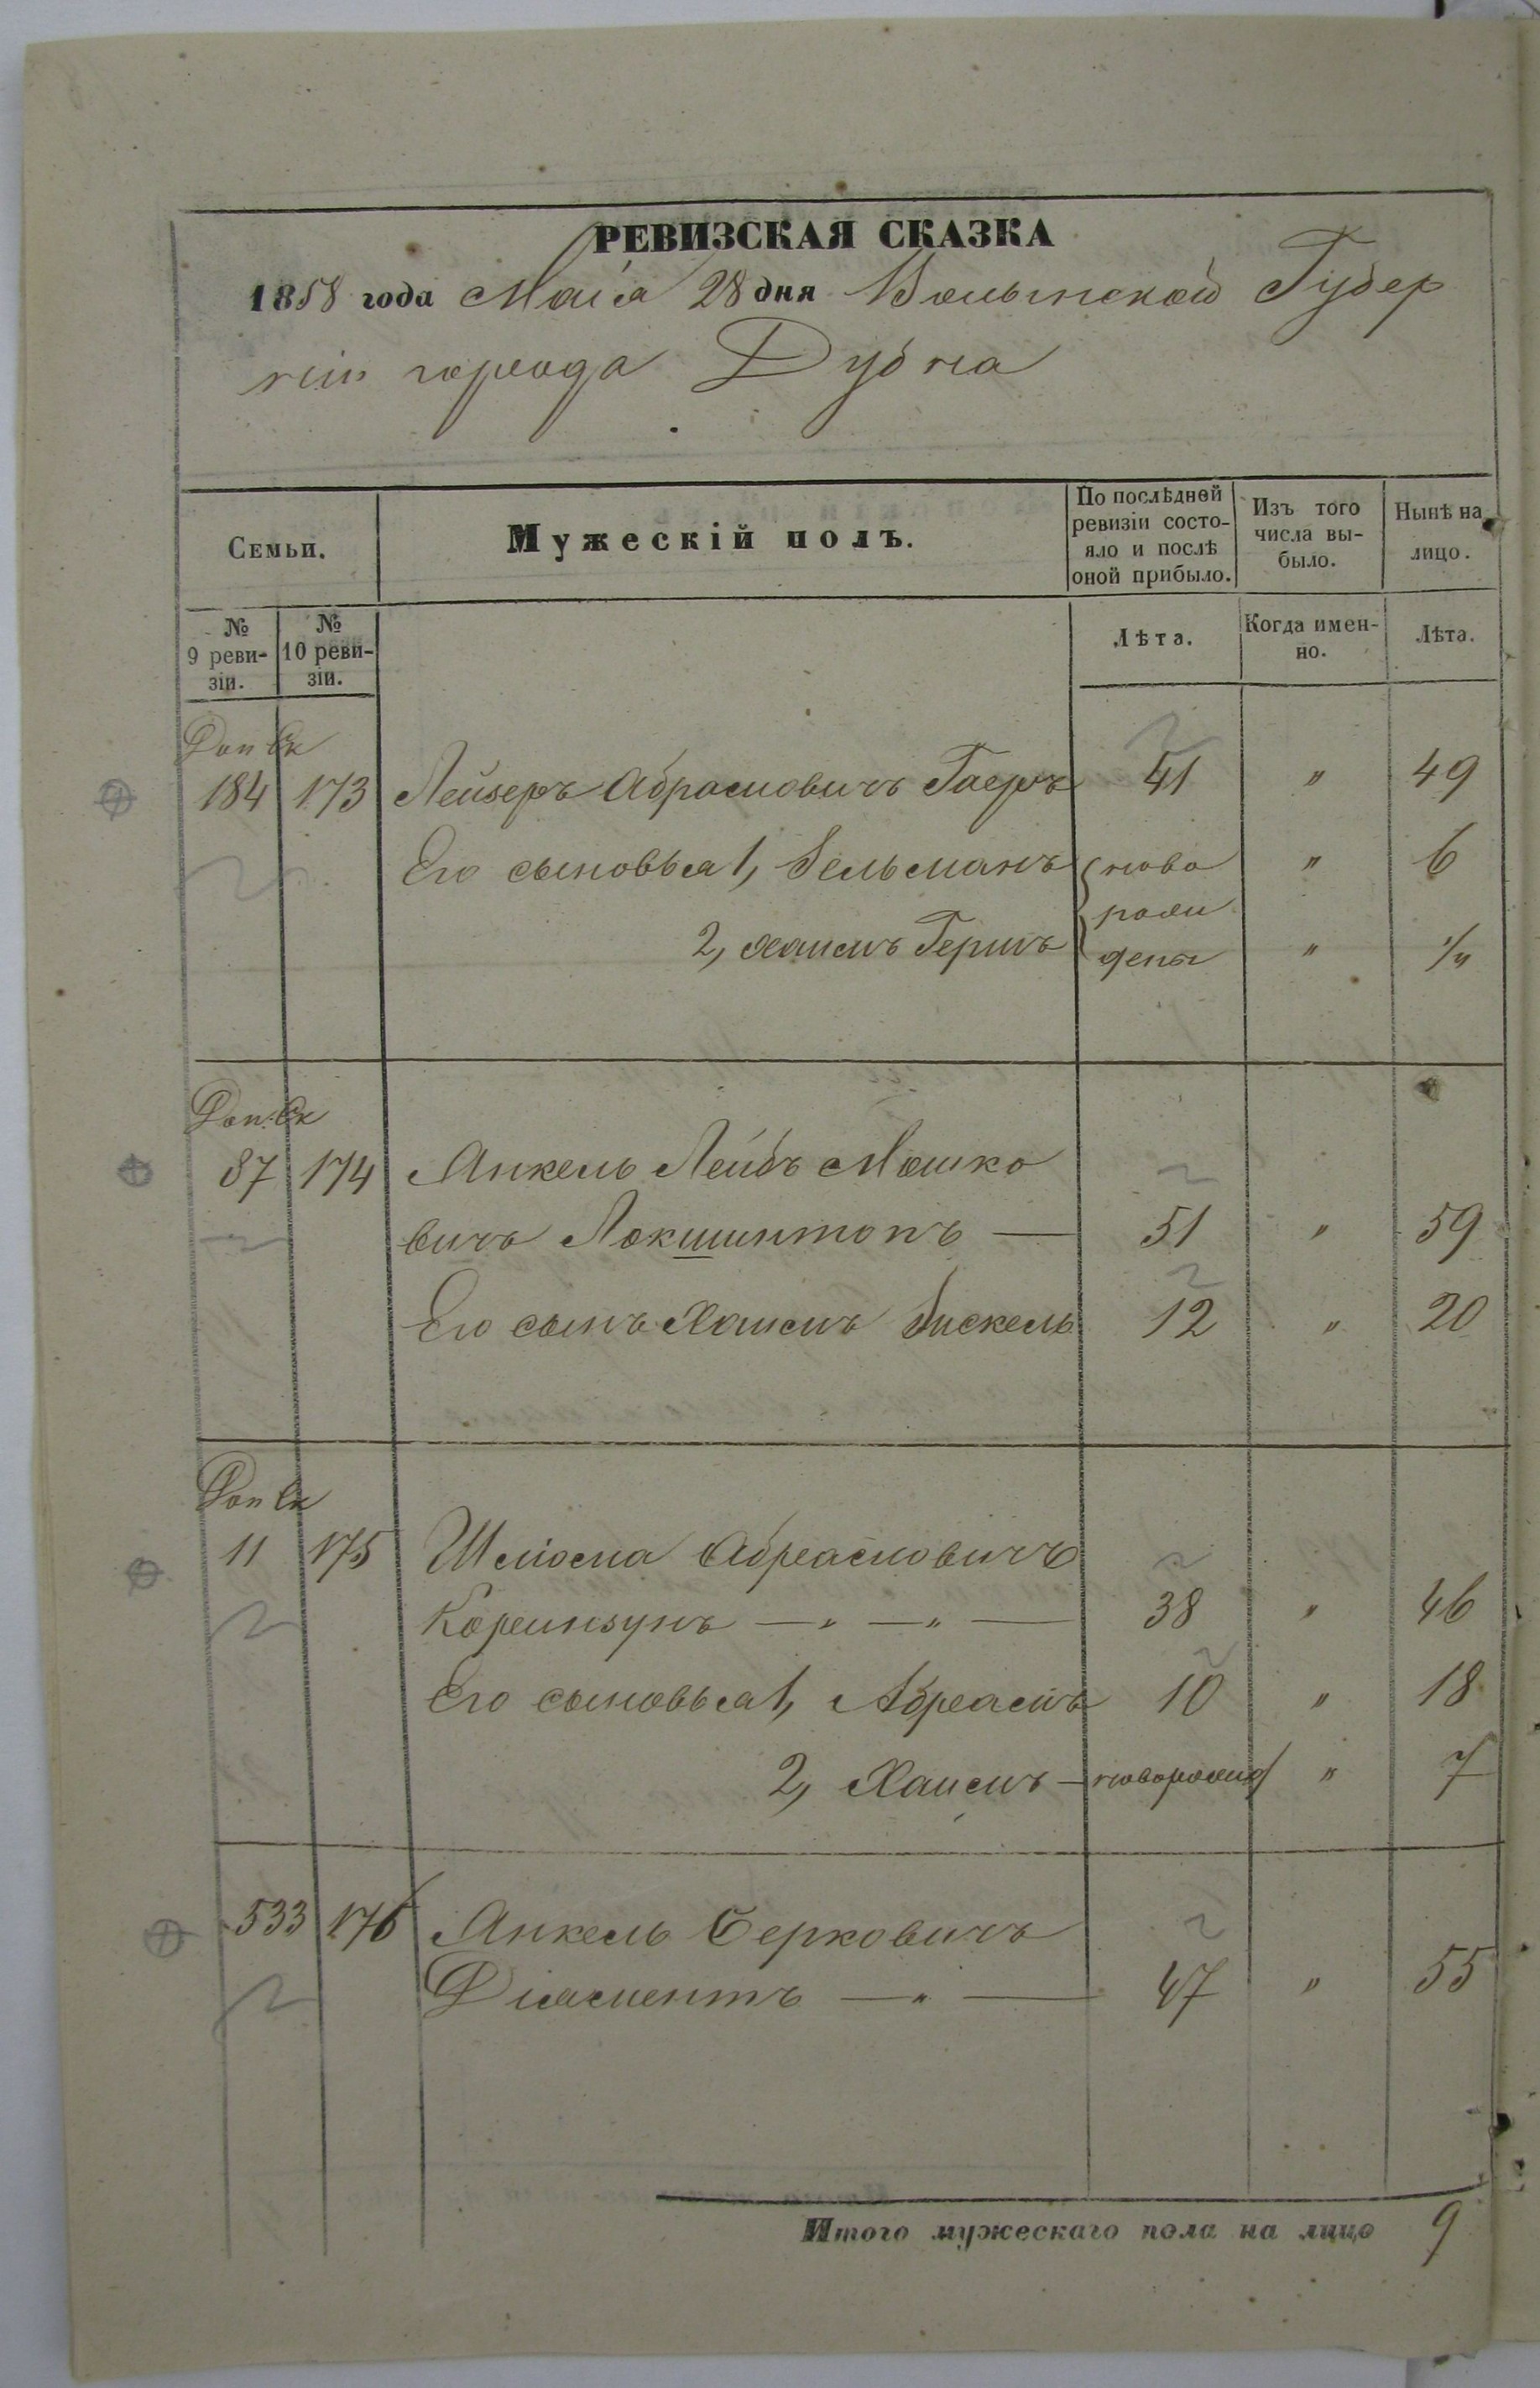 РЕВИЗСКАЯ СКАЗКА
1858 года Маія 28 дня Волынской Губер
ніи города Дубна
Семьи.
Мужескій полъ.
По послѣдней ревизіи состо-
яло и послѣ оной прибыло.
Изъ того числа вы-
было.
Нынѣ на лицо.
№ 9 реви-
зіи.
№ 10 реви-
зіи.
Лѣта.
Когда имен-
но.
Лѣта.
Доп Ск
184 173 Лейзеръ Абрамовичъ 41 " 49
Его сыновья 1, Зельманъ ново " 6
рож
2, Хаимъ Гершъ дены "
Доп. Ск
87 174 Янкель Лейбъ Мошко
вичъ Локшинтопъ — 51 " 59
Его сынъ Хаимъ 12 " 20
Доп Ск
11 175 Шліома Абрамовичъ
Корейнзунъ — " — " — 38 " 46
Его сыновья 1, Абрамъ 10 " 18
2, Хаимъ — новорожд " 7
533 176 Янкель Берковичъ
Діаментъ — " — 47 " 55
Итого мужескаго пола на лицо 9